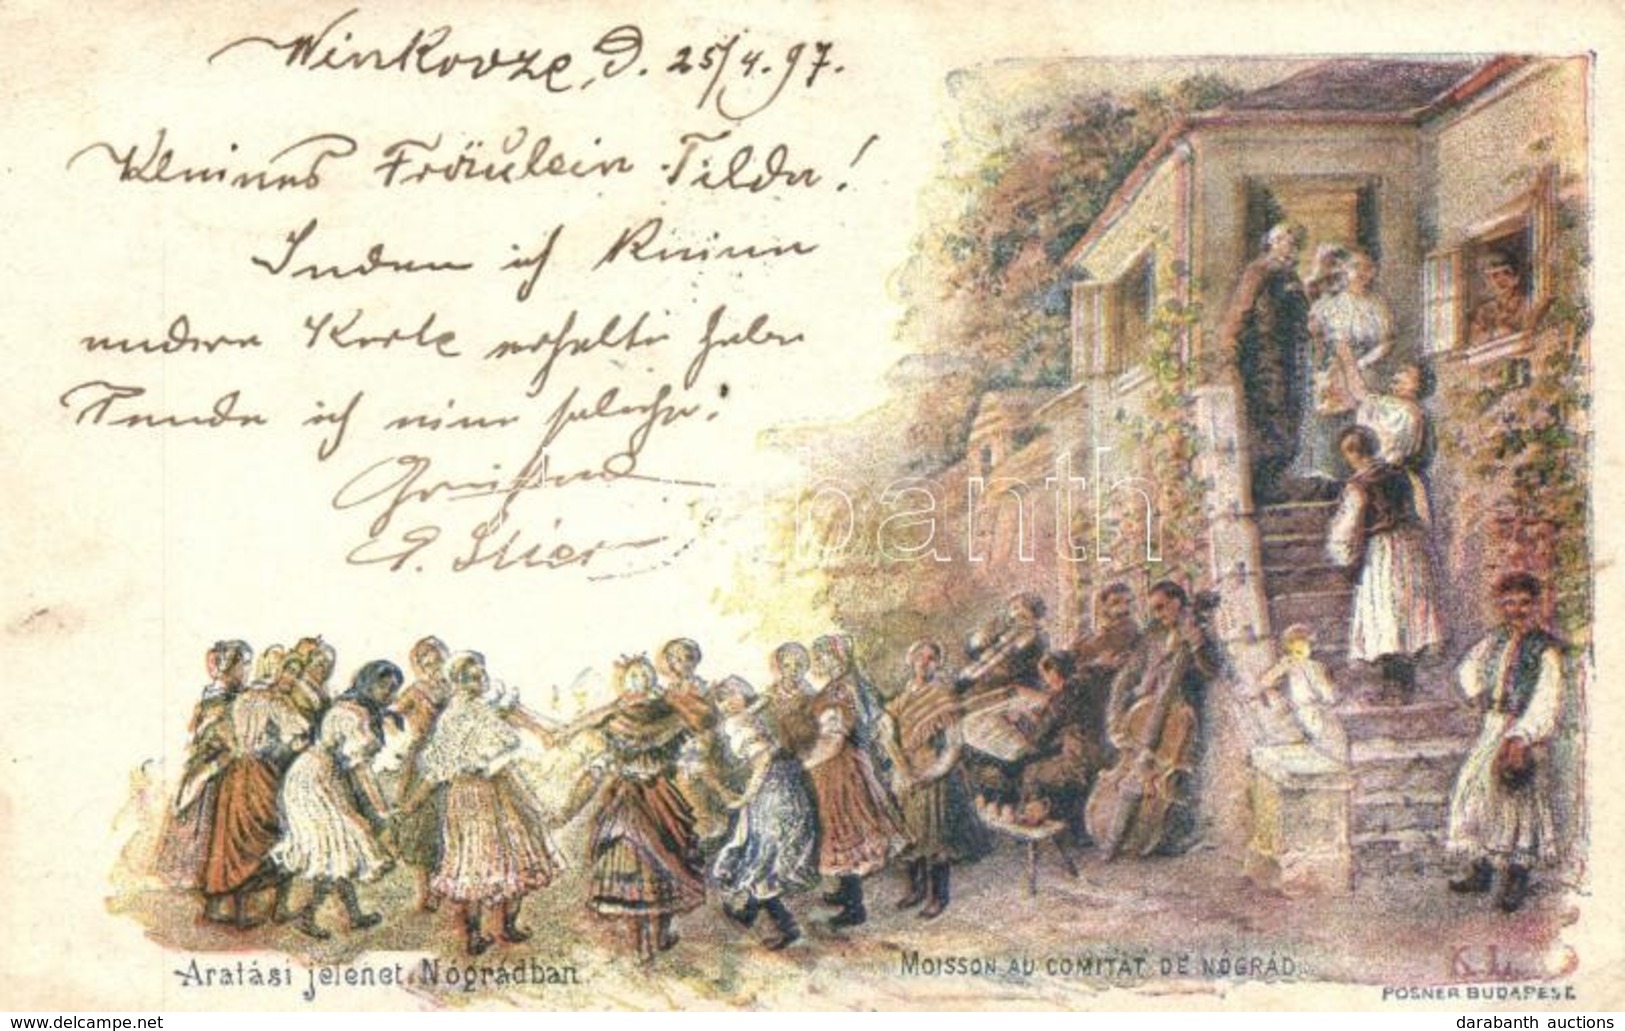 Winkovze, D. 25/4.97.
Kleines Fräulein Tilda!
Indem ich keine
andere Karte erhalten habe
sende ich eine solche.
Darabanth
Aratási jelenet. Nógrádban.
MOISSON AU COMITAT DE NÓGRÁD.
POSNER BUDAPEST
delcampe.net
darabanth auctions